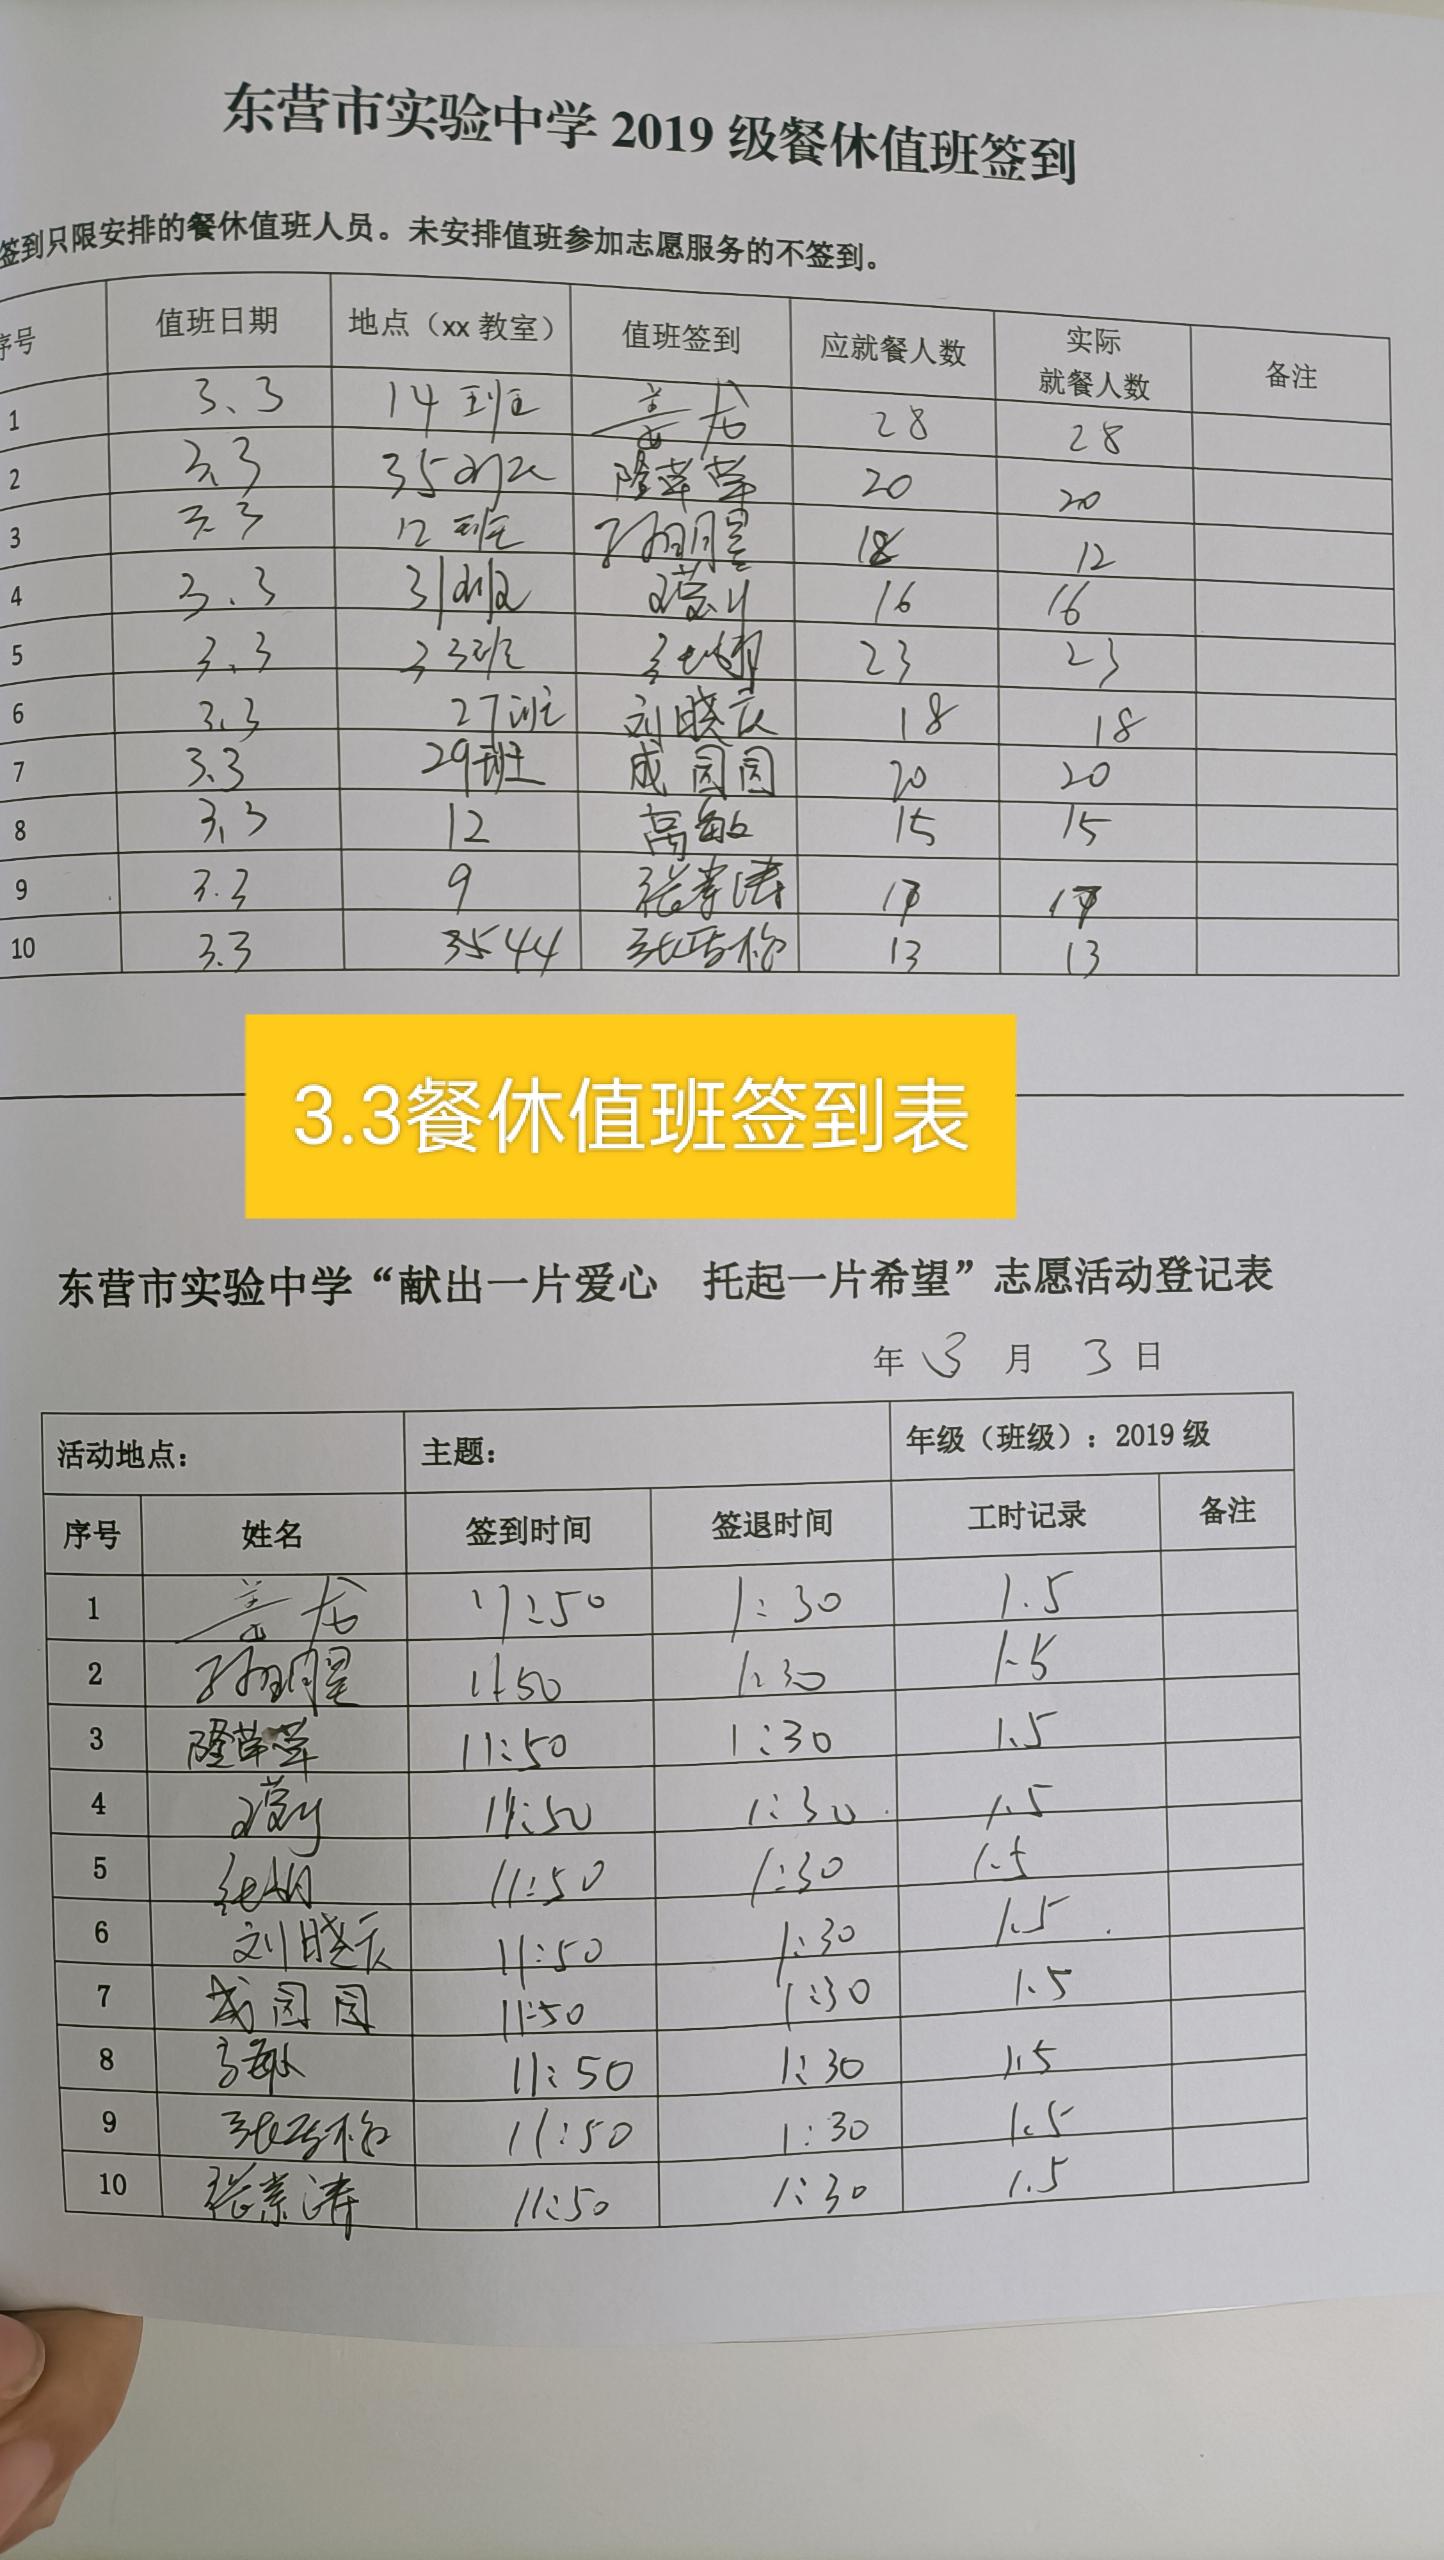 东营市实验中学 2019 级餐休值班签到
签到只限安排的餐休值班人员。未安排值班参加志愿服务的不签到。
序号 值班日期 地点（xx 教室） 值班签到 应就餐人数 实际就餐人数 备注
1 3.3 14班 28 28
2 3.3 35班 隆苹苹 20 20
3 3.3 12班 孙明星 12
4 3.3 31班 16 16
5 3.3 23班 23 23
6 3.3 27班 刘晓庆 18 18
7 3.3 29班 成园园 20 20
8 3.3 12 高敏 15 15
9 3.3 9 17 17
10 3.3 13 13
3.3餐休值班签到表
东营市实验中学“献出一片爱心 托起一片希望”志愿活动登记表
年 3 月 3 日
活动地点： 主题： 年级（班级）：2019 级
序号 姓名 签到时间 签退时间 工时记录 备注
1 11:50 1:30 1.5
2 孙明星 11:50 1:30 1.5
3 隆苹苹 11:50 1:30 1.5
4 11:50 1:30 1.5
5 11:50 1:30 1.5
6 刘晓庆 11:50 1:30 1.5
7 成园园 11:50 1:30 1.5
8 高敏 11:50 1:30 1.5
9 11:50 1:30 1.5
10 11:50 1:30 1.5